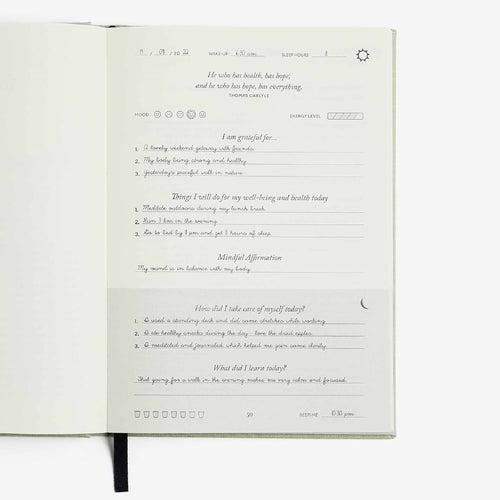 11 / 09 / 20 22 WAKE-UP 6:30 am SLEEP HOURS 8
He who has health, has hope;
and he who has hope, has everything.
THOMAS CARLYLE
MOOD ENERGY LEVEL
I am grateful for...
1. A lovely weekend getaway with friends
2. My body being strong and healthy
3. Yesterday's peaceful walk in nature
Things I will do for my well-being and health today
1. Meditate outdoors during my lunch break
2. Run 1 km in the evening
3. Go to bed by 11 pm and get 7 hours of sleep
Mindful Affirmation
My mind is in balance with my body
How did I take care of myself today?
1. I used a standing desk and did some stretches while working
2. I ate healthy snacks during the day - love the dried apples
3. I meditated and journaled which helped me gain some clarity
What did I learn today?
That going for a walk in the evening makes me very calm and focused
BEDTIME 10:30 pm